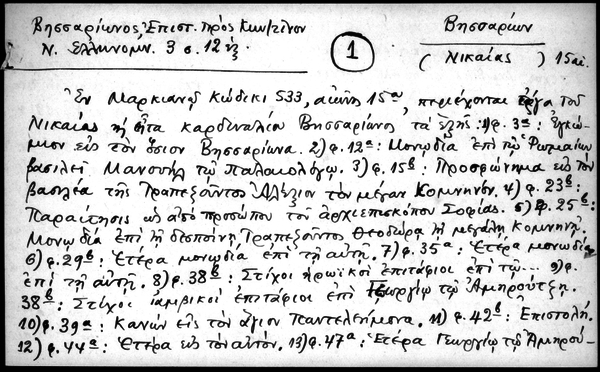 Βησσαρίωνος, Ἐπιστ. πρὸς Κων/τῖνον
Βησσαρίων
Ν. Ἑλληνομν. 3 σ. 12 ἑξ.
1
( Νικαίας ) 15 αἰ.
Ἐν Μαρκιανῷ κώδικι 533, αἰῶνος 15ου, περιέχονται ἔργα τοῦ
Νικαίας καὶ εἶτα καρδιναλίου Βησσαρίωνος τὰ ἑξῆς: 1) φ. 3α: Ἐγκώ-
μιον εἰς τὸν ὅσιον Βησσαρίωνα. 2) φ. 12α: Μονῳδία ἐπὶ τῷ Ῥωμαίων
βασιλεῖ Μανουὴλ τῷ Παλαιολόγῳ. 3) φ. 15β: Προσφώνημα εἰς τὸν
βασιλέα τῆς Τραπεζοῦντος Ἀλέξιον τὸν μέγαν Κομνηνόν. 4) φ. 23β:
Παραίτησις ὡς ἀπὸ προσώπου τοῦ ἀρχιεπισκόπου Σοφίας. 5) φ. 25β:
Μονῳδία ἐπὶ τῇ δεσποίνῃ Τραπεζοῦντος Θεοδώρᾳ τῇ μεγάλῃ Κομνηνῇ.
6) φ. 29β: Ἑτέρα μονῳδία ἐπὶ τῇ αὐτῇ. 7) φ. 35α: Ἑτέρα μονῳδία
ἐπὶ τῇ αὐτῇ. 8) φ. 38β: Στίχοι ἡρωϊκοὶ ἐπιτάφιοι ἐπὶ τῷ... 9) φ.
38β: Στίχοι ἰαμβικοὶ ἐπιτάφιοι ἐπὶ Γεωργίῳ τῷ Ἀμηρούτζῃ.
10) φ. 39α: Κανὼν εἰς τὸν ἅγιον Παντελεήμονα. 11) φ. 42β: Ἐπιστολή.
12) φ. 44α: Ἑτέρα εἰς τὸν αὐτόν. 13) φ. 47α: Ἑτέρα Γεωργίῳ τῷ Ἀμηρού-